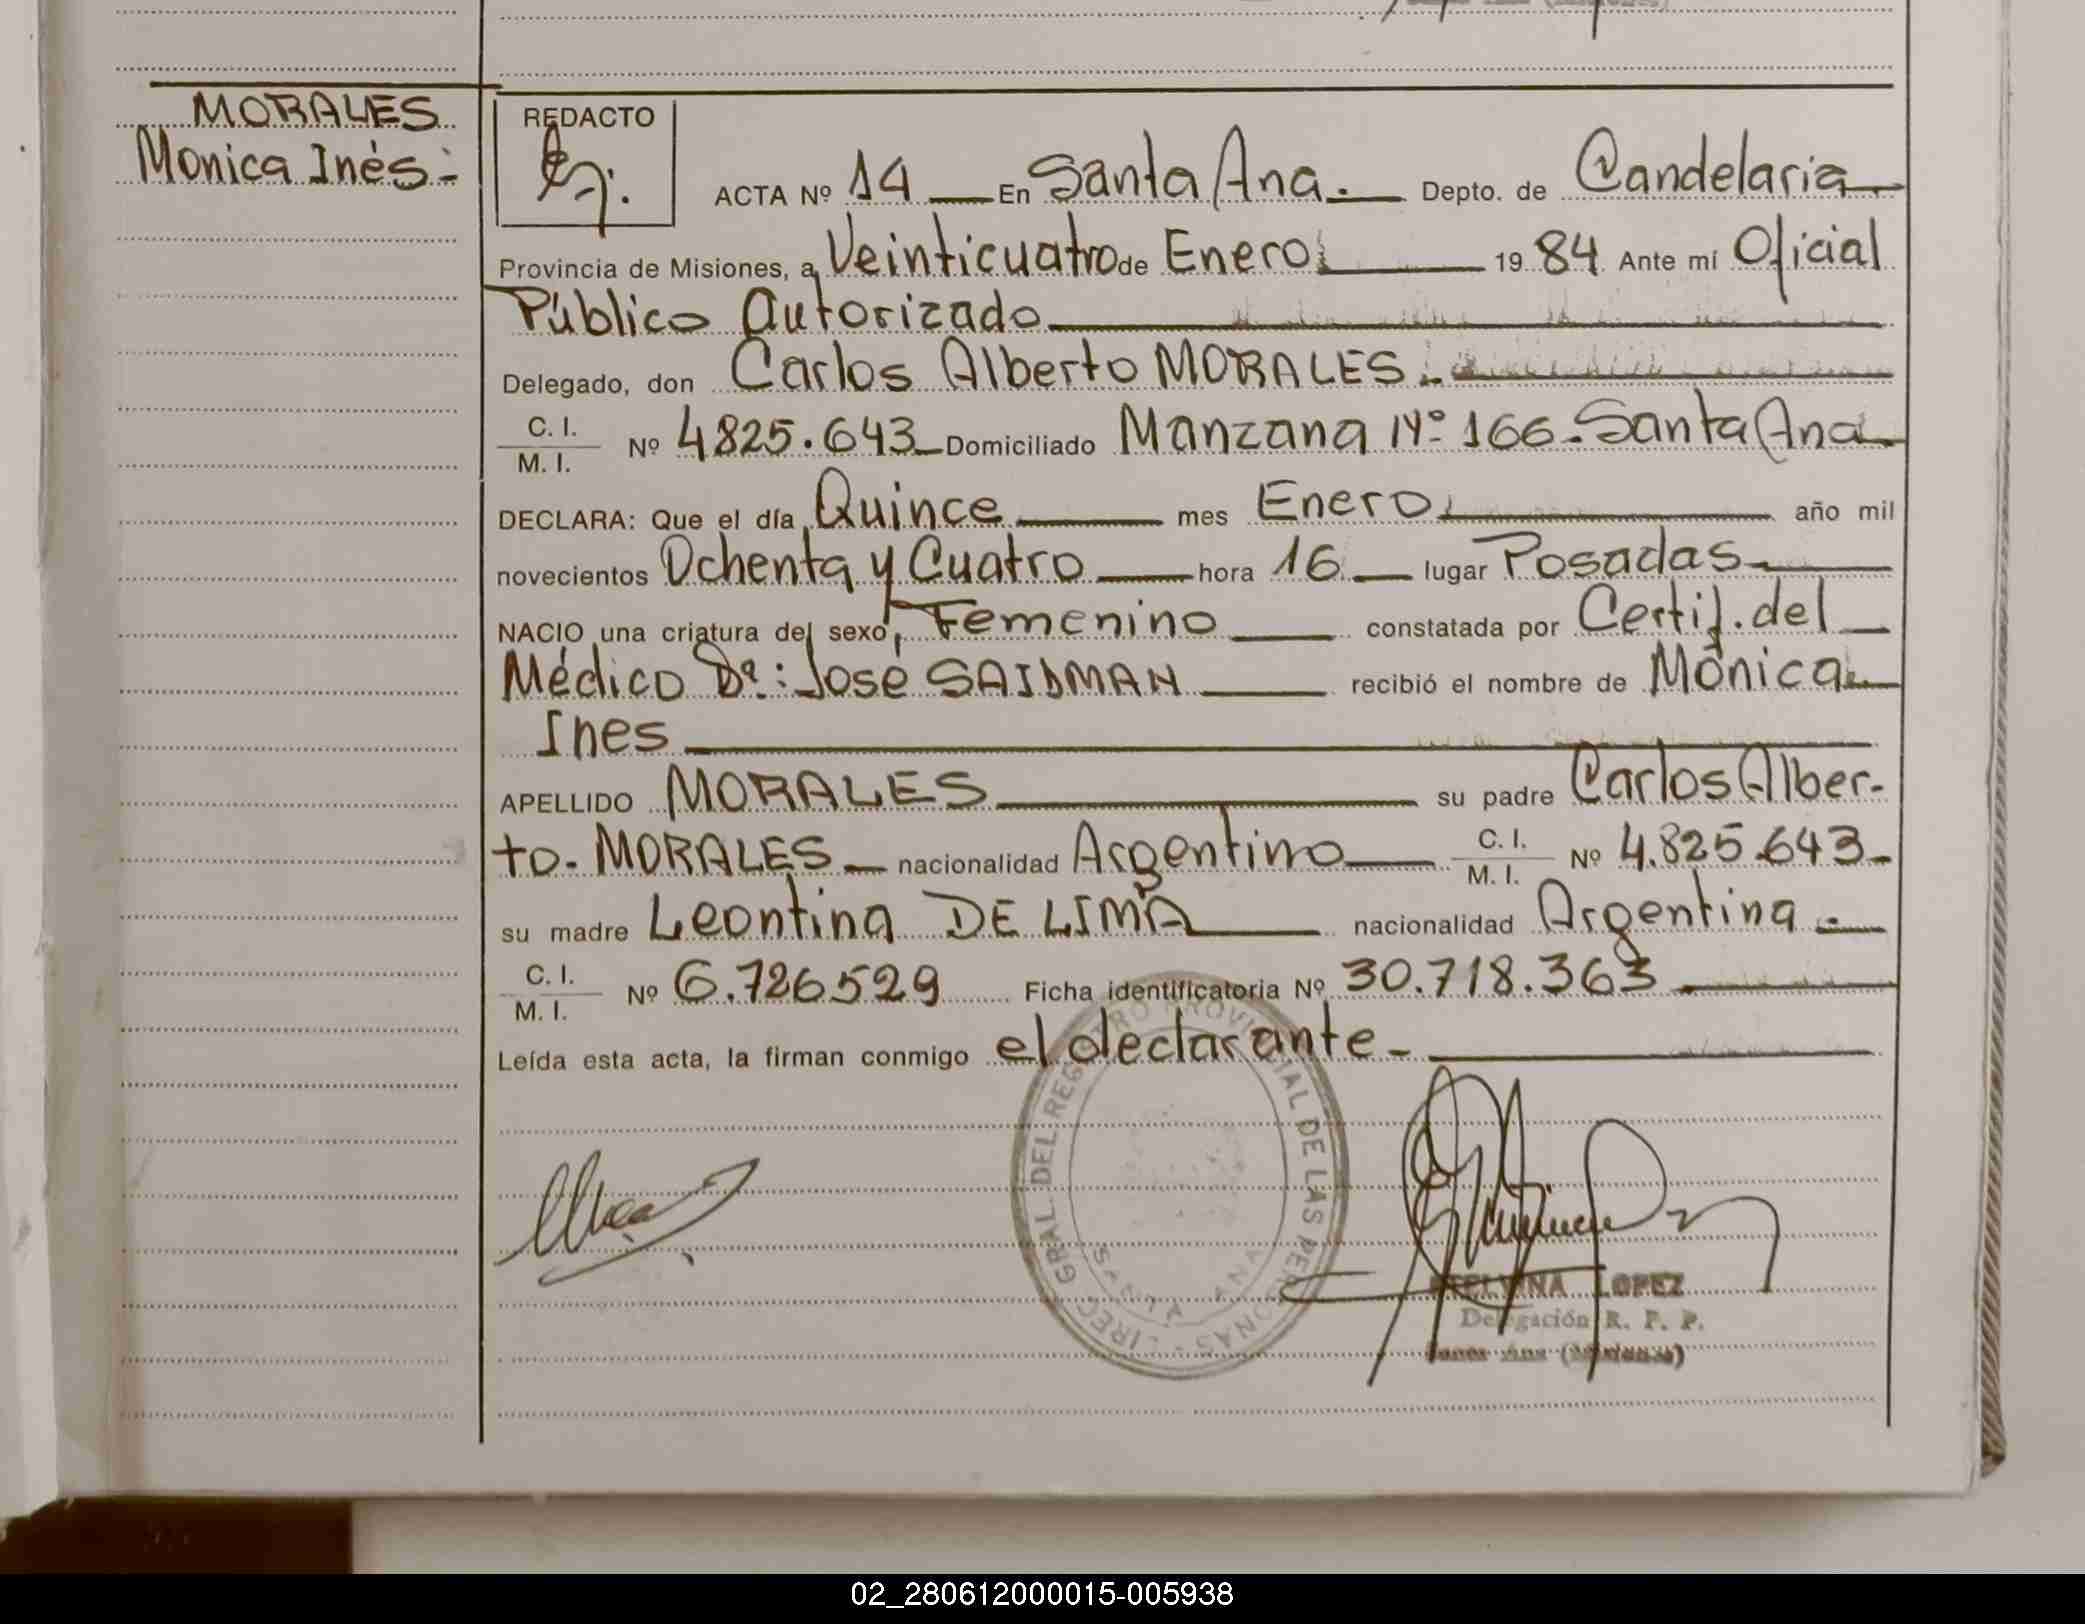 MORALES
Monica Inés.-
REDACTO
ACTA Nº 14 En Santa Ana. Depto. de Candelaria
Provincia de Misiones, a Veinticuatro de Enero 1984 Ante mí Oficial
Público Autorizado
Delegado, don Carlos Alberto MORALES.
C. I.
M. I. Nº 4825.643 Domiciliado Manzana Nº 166. Santa Ana
DECLARA: Que el día Quince mes Enero año mil
novecientos Ochenta y Cuatro hora 16 lugar Posadas
NACIO una criatura del sexo, Femenino constatada por Certif. del
Médico Dr: José SAIDMAN recibió el nombre de Mónica
Ines
APELLIDO MORALES su padre Carlos Alber-
to. MORALES nacionalidad Argentino C. I. M. I. Nº 4.825.643
su madre Leontina DE LIMA nacionalidad Argentina.
C. I.
M. I. Nº 6.726529 Ficha identificatoria Nº 30.718.363
Leída esta acta, la firman conmigo el declarante
DIREC. GRAL. DEL REGISTRO PROVINCIAL DE LAS PERSONAS -
SANTA ANA
LOPEZ
Delegación R. P. P.
Santa Ana (Misiones)
02_280612000015-005938